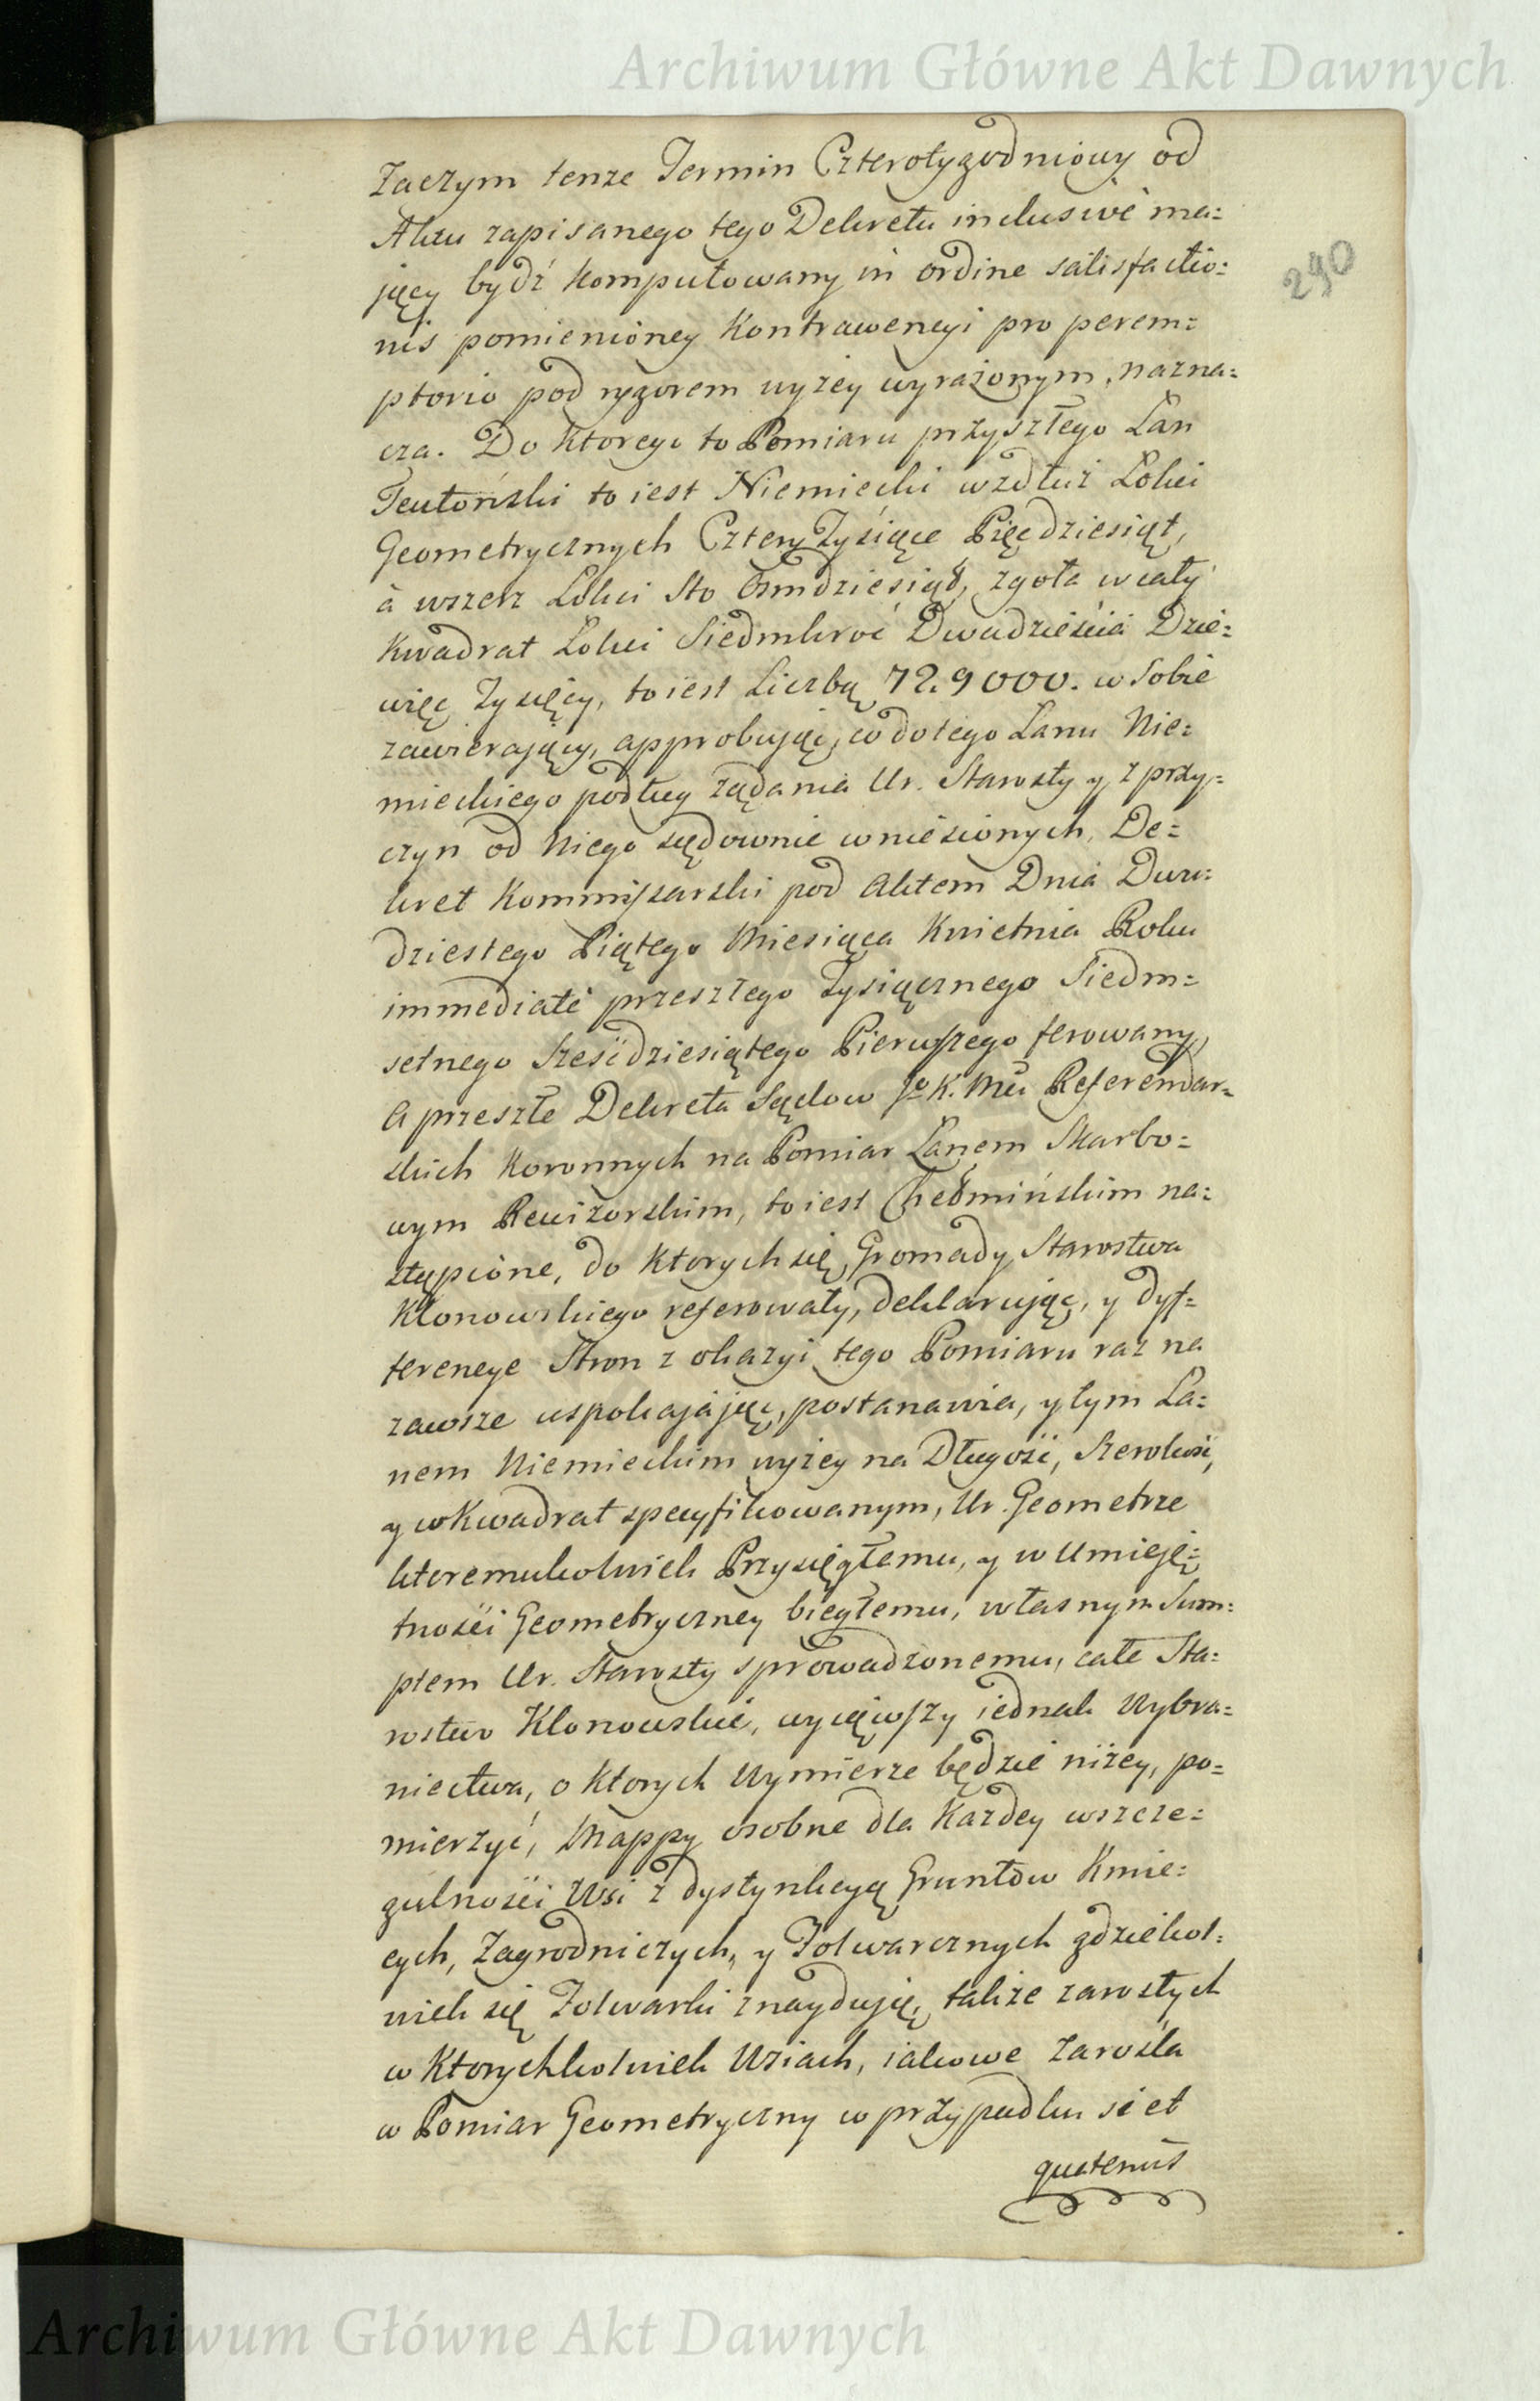 Archiwum Główne Akt Dawnych
290
Zaczym tenze Termin Czterotygodniowy od
Aktu zapisanego tego Dekretu inclusivè ma=
jący bydź komputowany in ordine satisfactio=
nis pomienioney Kontrawencyi pro perem=
ptorio pod rygorem wyżey wyrażonym, nazna=
cza. Do ktorego to Pomiaru przyszłego Łan
Teutoński to iest Niemiecki wzdłuż Łokci
Geometrycznych Cztery Tysiące Pięcdziesiąt,
à wszerz Łokci Sto Osmdziesiąt, zgoła w cały
Kwadrat Łokci Siedmkroć Dwadzieścia Dzie=
więc Tysięcy, to iest Liczbą 72.9000. w Sobie
zawieraiący, approbując, co do tego Łanu Nie=
mieckiego podług żądania Ur. Starosty y z przy=
czyn od Niego sądownie wniesionych, De=
kret Kommissarski pod Aktem Dnia Dwu=
dziestego Piątego Miesiąca Kwietnia Roku
immediatè przeszłego Tysiącznego Siedm=
setnego Sześćdziesiątego Pierwszego ferowany,
a przeszłe Dekreta Sądow Jo K. Mci Referendar=
skich Koronnych na Pomiar Łanem Skarbo=
wym Rewizorskim, to iest Chełmińskim na=
stąpione, do ktorych się Gromady Starostwa
Klonowskiego referowały, deklarując, y dyf=
ferencye Stron z okazyi tego Pomiaru raz na
zawsze uspokajając, postanawia, y tym Ła=
nem Niemieckim wyżey na Długość, Szerokość,
y w Kwadrat specyfikowanym, Ur. Geometrze
ktoremukolwiek Przysięgłemu, y w Umieję=
tności Geometryczney biegłemu, własnym Sum=
ptem Ur. Starosty sprowadzonemu, całe Sta=
rostwo Klonowskie, wyiąwszy iednak Wybra=
niectwa, o ktorych Wymierze będzie niżey, po=
mierzyć, Mappy osobne dla Każdey wszcze=
gulności Wsi z dystynkcyą Gruntow Kmie=
cych, Zagrodniczych, y Folwarcznych gdziekol=
wiek się Folwarki znayduią, także zarosłych
w ktorychkolwiek Wsiach, iakowe Zarosla
w Pomiar Geometryczny w przypadku si et
quatenùs
Archiwum Główne Akt Dawnych